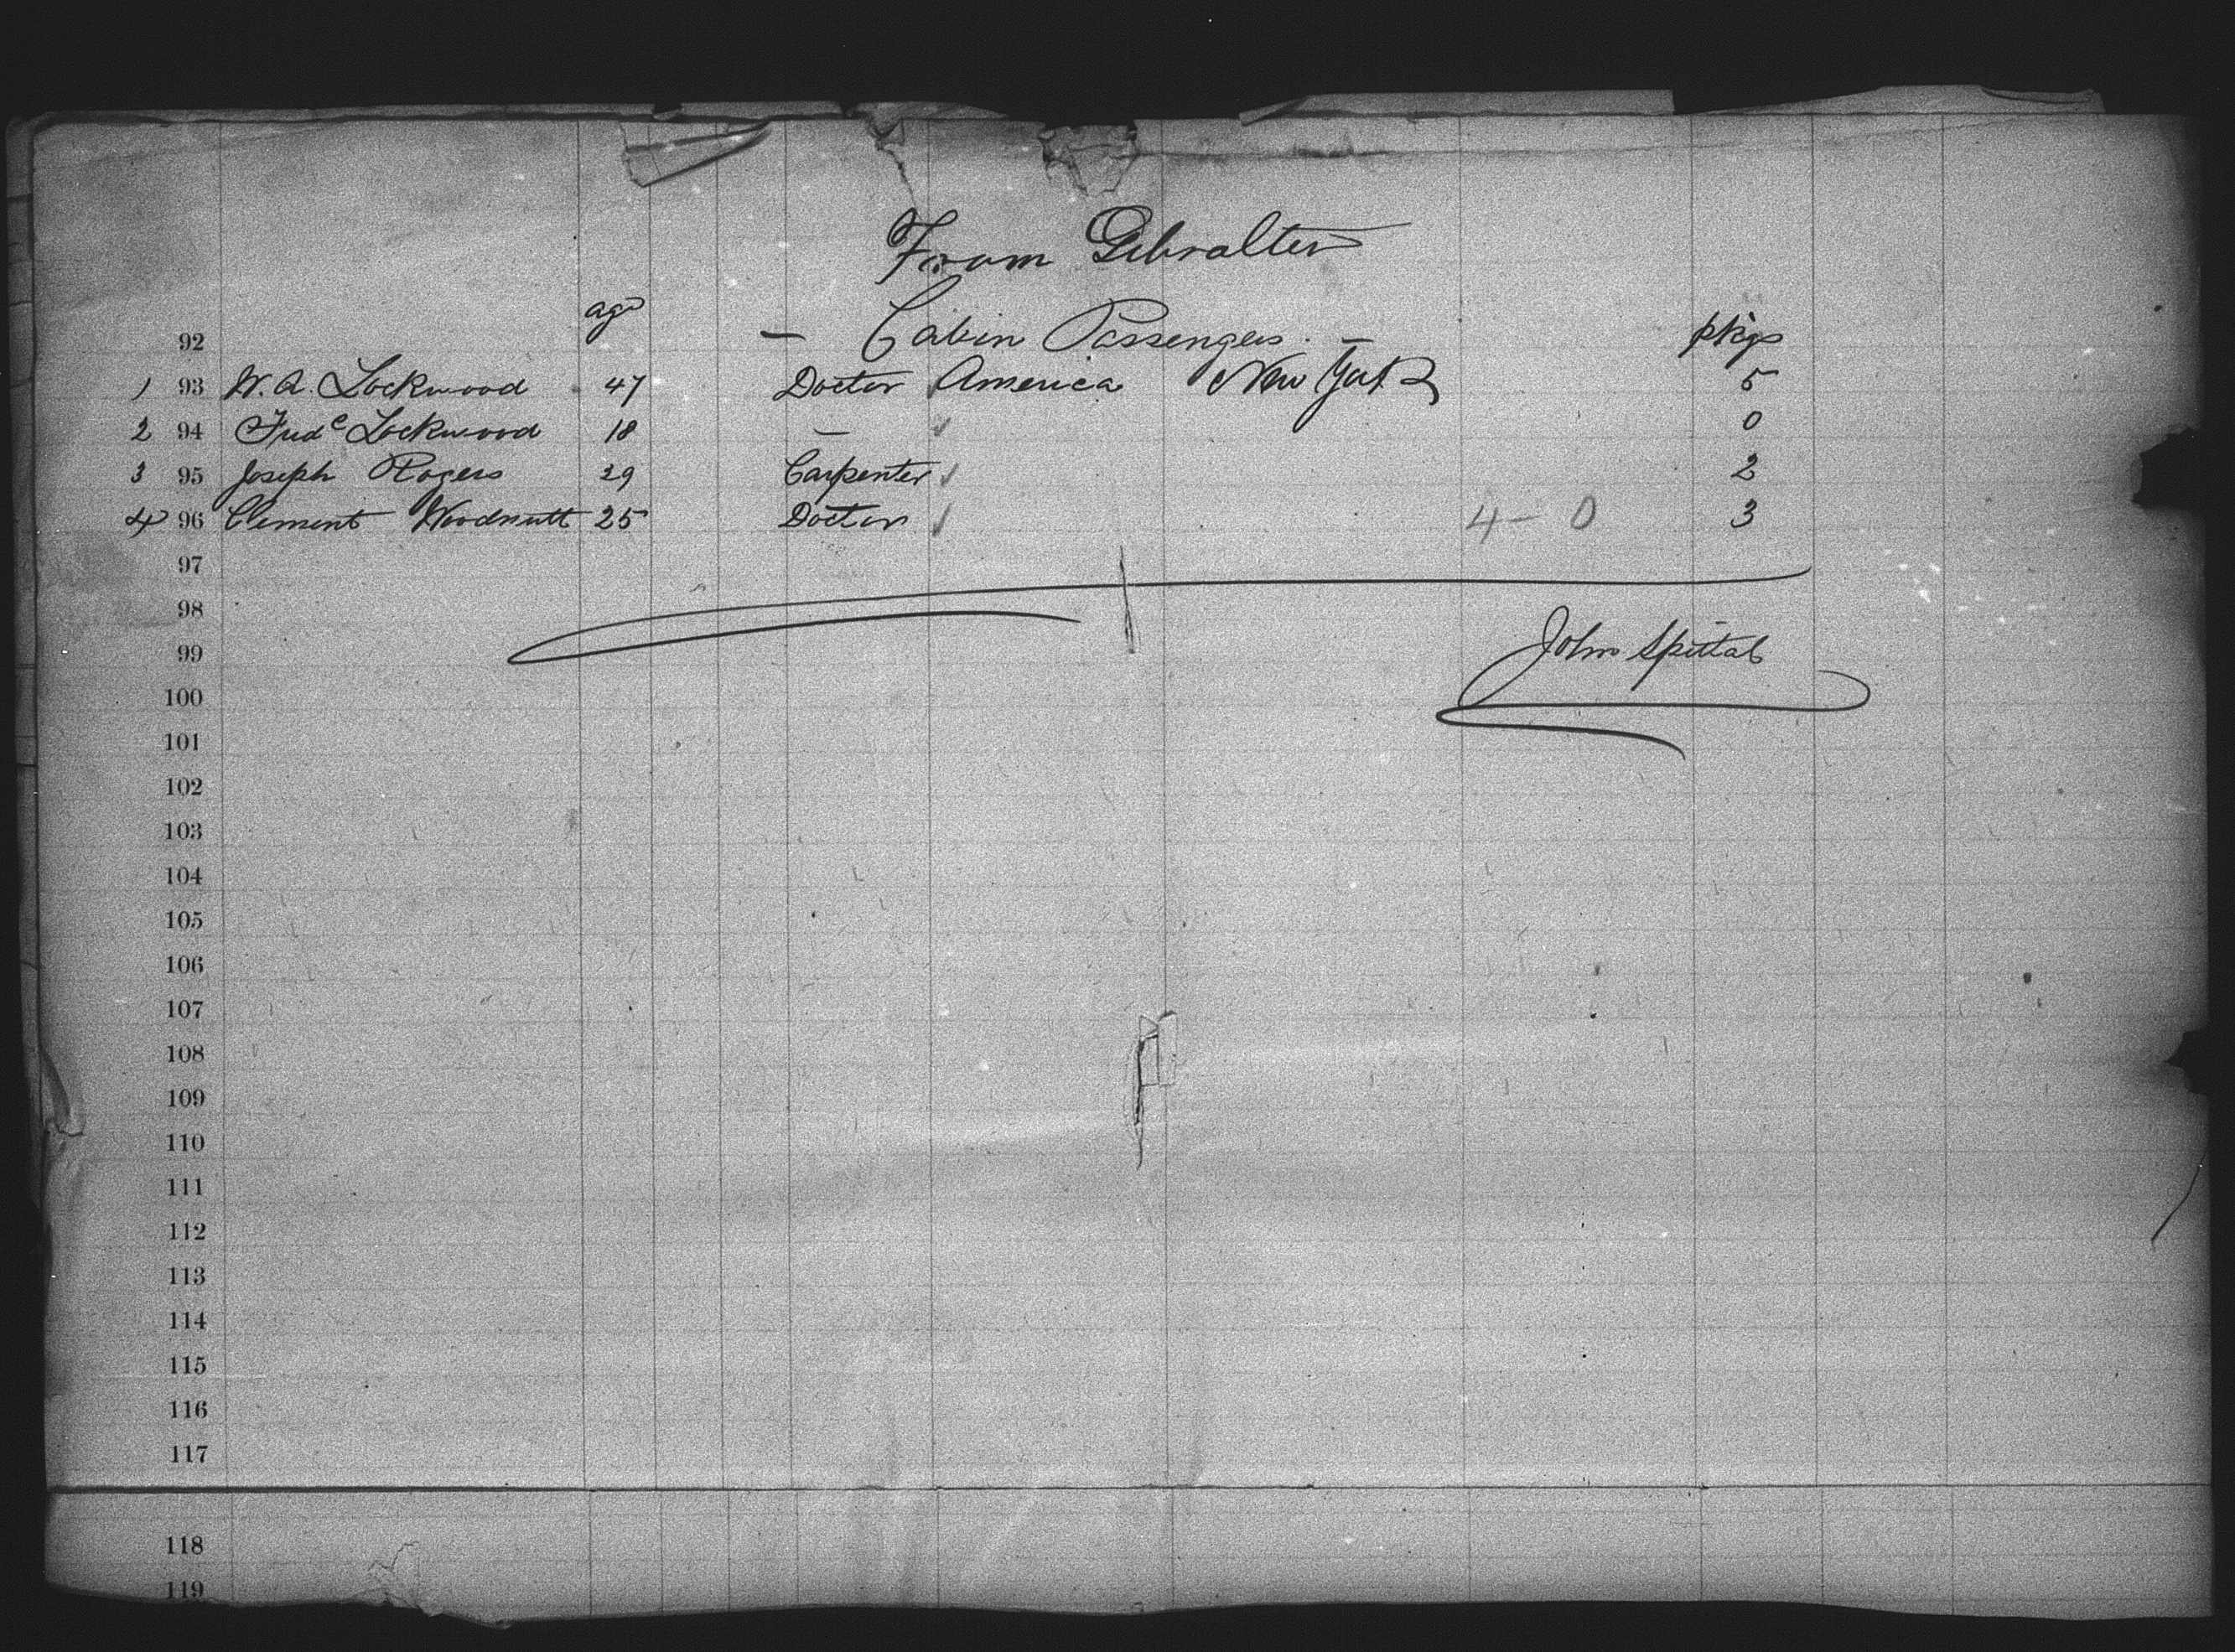 From Gibralter
age
92 – Cabin Passengers. – pkgs
1 93 W. A. Lockwood 47 Doctor America New York 5
2 94 Fredᶜ Lockwood 18 – ✓ 0
3 95 Joseph Rogers 29 Carpenter ✓ 2
4 96 Clement Woodnutt 25 Doctor ✓ 4 – 0 3
97
98
John Spittal
99
100
101
102
103
104
105
106
107
108
109
110
111
112
113
114
115
116
117
118
119